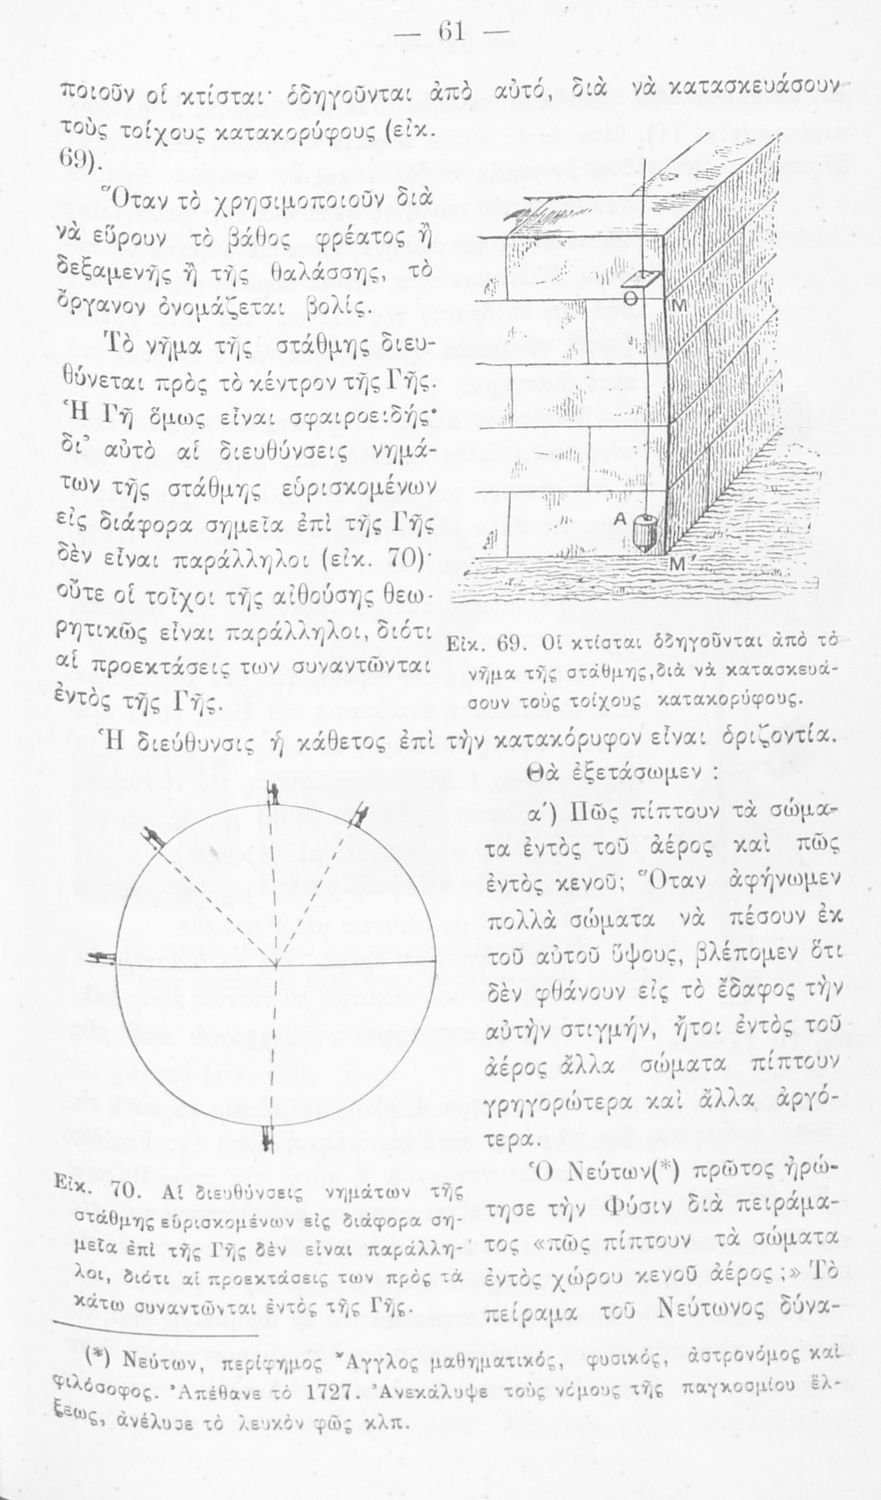 — 61 —
ποιοῦν οἱ κτίσται· ὁδηγοῦνται ἀπὸ αὐτό, διὰ νὰ κατασκευάσουν
τοὺς τοίχους κατακορύφους (εἰκ.
69).
Ὅταν τὸ χρησιμοποιοῦν διὰ
νὰ εὕρουν τὸ βάθος φρέατος ἢ
δεξαμενῆς ἢ τῆς θαλάσσης, τὸ
ὄργανον ὀνομάζεται βολίς.
Τὸ νῆμα τῆς στάθμης διευ-
θύνεται πρὸς τὸ κέντρον τῆς Γῆς.
Ἡ Γῆ ὅμως εἶναι σφαιροειδής·
δι’ αὐτὸ αἱ διευθύνσεις νημά-
των τῆς στάθμης εὑρισκομένων
εἰς διάφορα σημεῖα ἐπὶ τῆς Γῆς
δὲν εἶναι παράλληλοι (εἰκ. 70)·
οὔτε οἱ τοῖχοι τῆς αἰθούσης θεω-
ρητικῶς εἶναι παράλληλοι, διότι
αἱ προεκτάσεις των συναντῶνται
ἐντὸς τῆς Γῆς.
O
M
A
M′
Εἰκ. 69. Οἱ κτίσται ὁδηγοῦνται ἀπὸ τὸ
νῆμα τῆς στάθμης, διὰ νὰ κατασκευά-
σουν τοὺς τοίχους κατακορύφους.
Ἡ διεύθυνσις ἡ κάθετος ἐπὶ τὴν κατακόρυφον εἶναι ὁριζοντία.
Θὰ ἐξετάσωμεν :
α΄) Πῶς πίπτουν τὰ σώμα-
τα ἐντὸς τοῦ ἀέρος καὶ πῶς
ἐντὸς κενοῦ; Ὅταν ἀφήνωμεν
πολλὰ σώματα νὰ πέσουν ἐκ
τοῦ αὐτοῦ ὕψους, βλέπομεν ὅτι
δὲν φθάνουν εἰς τὸ ἔδαφος τὴν
αὐτὴν στιγμήν, ἤτοι ἐντὸς τοῦ
ἀέρος ἄλλα σώματα πίπτουν
γρηγορώτερα καὶ ἄλλα ἀργό-
τερα.
Ὁ Νεύτων(*) πρῶτος ἠρώ-
τησε τὴν Φύσιν διὰ πειράμα-
τος «πῶς πίπτουν τὰ σώματα
ἐντὸς χώρου κενοῦ ἀέρος ;» Τὸ
πείραμα τοῦ Νεύτωνος δύνα-
Εἰκ. 70. Αἱ διευθύνσεις νημάτων τῆς
στάθμης εὑρισκομένων εἰς διάφορα ση-
μεῖα ἐπὶ τῆς Γῆς δὲν εἶναι παράλλη-
λοι, διότι αἱ προεκτάσεις των πρὸς τὰ
κάτω συναντῶνται ἐντὸς τῆς Γῆς.
(*) Νεύτων, περίφημος Ἄγγλος μαθηματικός, φυσικός, ἀστρονόμος καὶ
φιλόσοφος. Ἀπέθανε τὸ 1727. Ἀνεκάλυψε τοὺς νόμους τῆς παγκοσμίου ἕλ-
ξεως, ἀνέλυσε τὸ λευκὸν φῶς κλπ.